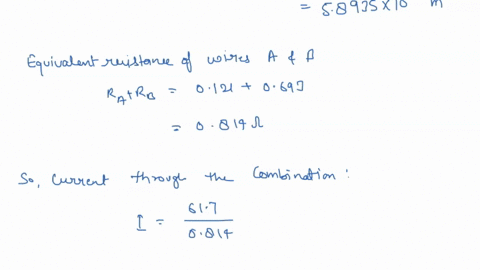 = 5.8935×10 m
Equivalent resistance of wires A & B
R_A+R_B = 0.121 + 0.693
= 0.814Ω
So, Current through the Combination:
I = 61.7 / 0.814